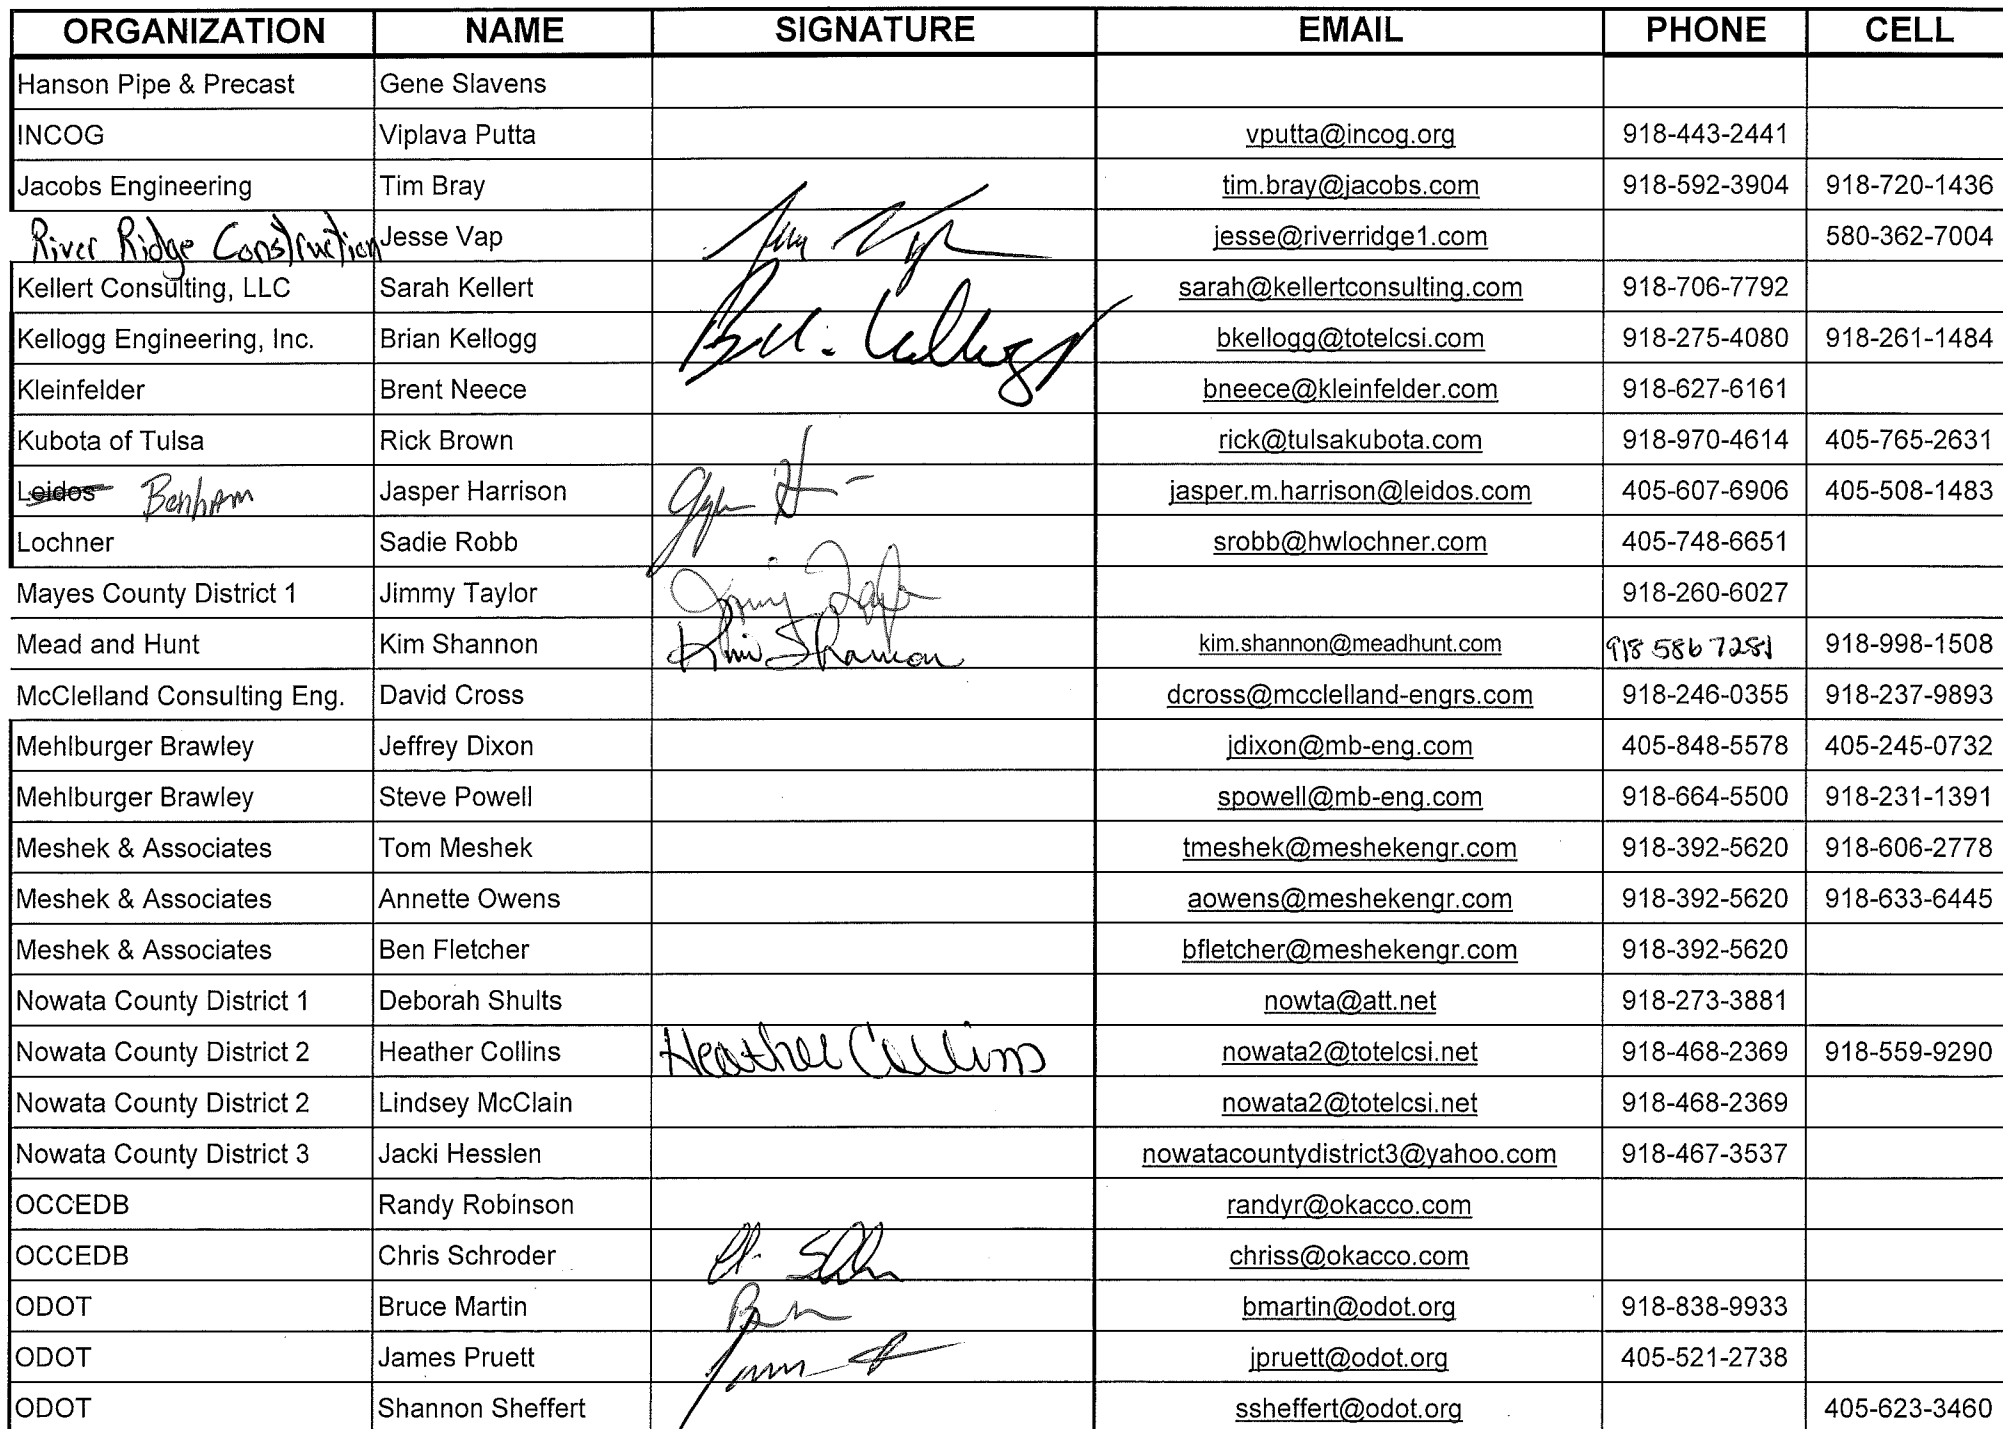 ORGANIZATION NAME SIGNATURE EMAIL PHONE CELL
Hanson Pipe & Precast Gene Slavens
INCOG Viplava Putta vputta@incog.org 918-443-2441
Jacobs Engineering Tim Bray tim.bray@jacobs.com 918-592-3904 918-720-1436
River Ridge Construction Jesse Vap jesse@riverridge1.com 580-362-7004
Kellert Consulting, LLC Sarah Kellert sarah@kellertconsulting.com 918-706-7792
Kellogg Engineering, Inc. Brian Kellogg bkellogg@totelcsi.com 918-275-4080 918-261-1484
Kleinfelder Brent Neece bneece@kleinfelder.com 918-627-6161
Kubota of Tulsa Rick Brown rick@tulsakubota.com 918-970-4614 405-765-2631
Leidos Benham Jasper Harrison jasper.m.harrison@leidos.com 405-607-6906 405-508-1483
Lochner Sadie Robb srobb@hwlochner.com 405-748-6651
Mayes County District 1 Jimmy Taylor Jimmy Taylor 918-260-6027
Mead and Hunt Kim Shannon Kim Shannon kim.shannon@meadhunt.com 918 586 7281 918-998-1508
McClelland Consulting Eng. David Cross dcross@mcclelland-engrs.com 918-246-0355 918-237-9893
Mehlburger Brawley Jeffrey Dixon jdixon@mb-eng.com 405-848-5578 405-245-0732
Mehlburger Brawley Steve Powell spowell@mb-eng.com 918-664-5500 918-231-1391
Meshek & Associates Tom Meshek tmeshek@meshekengr.com 918-392-5620 918-606-2778
Meshek & Associates Annette Owens aowens@meshekengr.com 918-392-5620 918-633-6445
Meshek & Associates Ben Fletcher bfletcher@meshekengr.com 918-392-5620
Nowata County District 1 Deborah Shults nowta@att.net 918-273-3881
Nowata County District 2 Heather Collins Heather Collins nowata2@totelcsi.net 918-468-2369 918-559-9290
Nowata County District 2 Lindsey McClain nowata2@totelcsi.net 918-468-2369
Nowata County District 3 Jacki Hesslen nowatacountydistrict3@yahoo.com 918-467-3537
OCCEDB Randy Robinson randyr@okacco.com
OCCEDB Chris Schroder chriss@okacco.com
ODOT Bruce Martin bmartin@odot.org 918-838-9933
ODOT James Pruett jpruett@odot.org 405-521-2738
ODOT Shannon Sheffert ssheffert@odot.org 405-623-3460